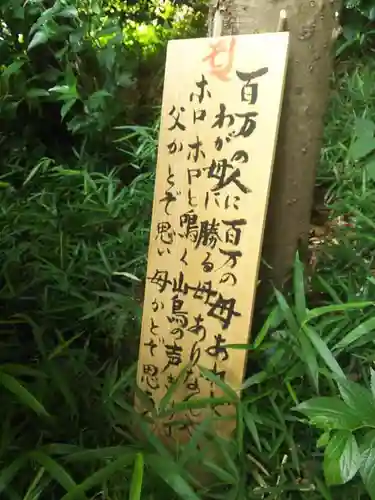 百万の人に百万の母あれど
わが母に勝る母あり
ホロホロと鳴く山鳥の声
父かとぞ思い母かとぞ思